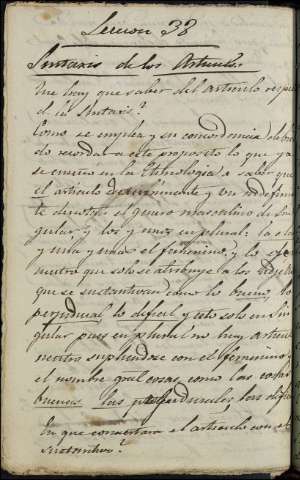 Leccion 38
Sintaxis de los Articulos.
Que hay que saber del articulo respec
de la Sintaxis?
Como se emplea y su concordancia debien
do recordar a este proposito lo que ya
se enseño en la a saber que
el articulo y un indefini
te denotan el genero masculino de sin
gular, y los y unos en plural: la ella
y una y unas el femenino, y lo
neutro que solo se atribuye a los adjeti
que se sustantivan como lo bueno, lo
perjudicial, lo dificil y esto solo en Sin
gular pues en plural no hay articu
neutro supliendose con el femenino y
el nombre gral cosas como las cosas
buenas las perjudiciales, las dific
En que concuerda el articulo con el
sustantivo?